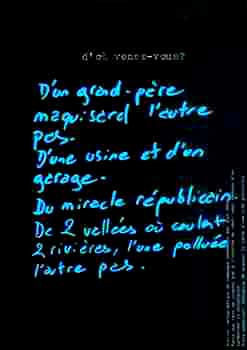 d'où venez-vous?
D'un grand-père
maquisard l'autre
pas.
D'une usine et d'un
garage.
Du miracle républicain.
De 2 vallées où coulent
2 rivières, l'une polluée
l'autre pas.